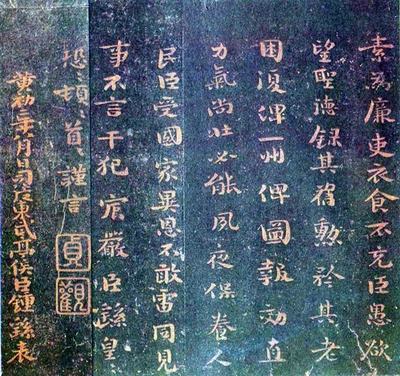 素為廉吏衣食不充臣愚欲
望聖德錄其舊勳矜其老
困復俾一州俾圖報効直
力氣尚壯必能夙夜保養人
民臣受國家異恩不敢雷同見
事不言干犯宸嚴臣繇皇
恐頓首謹言
貞觀
黃初二年八月日司徒東武亭侯臣鍾繇表